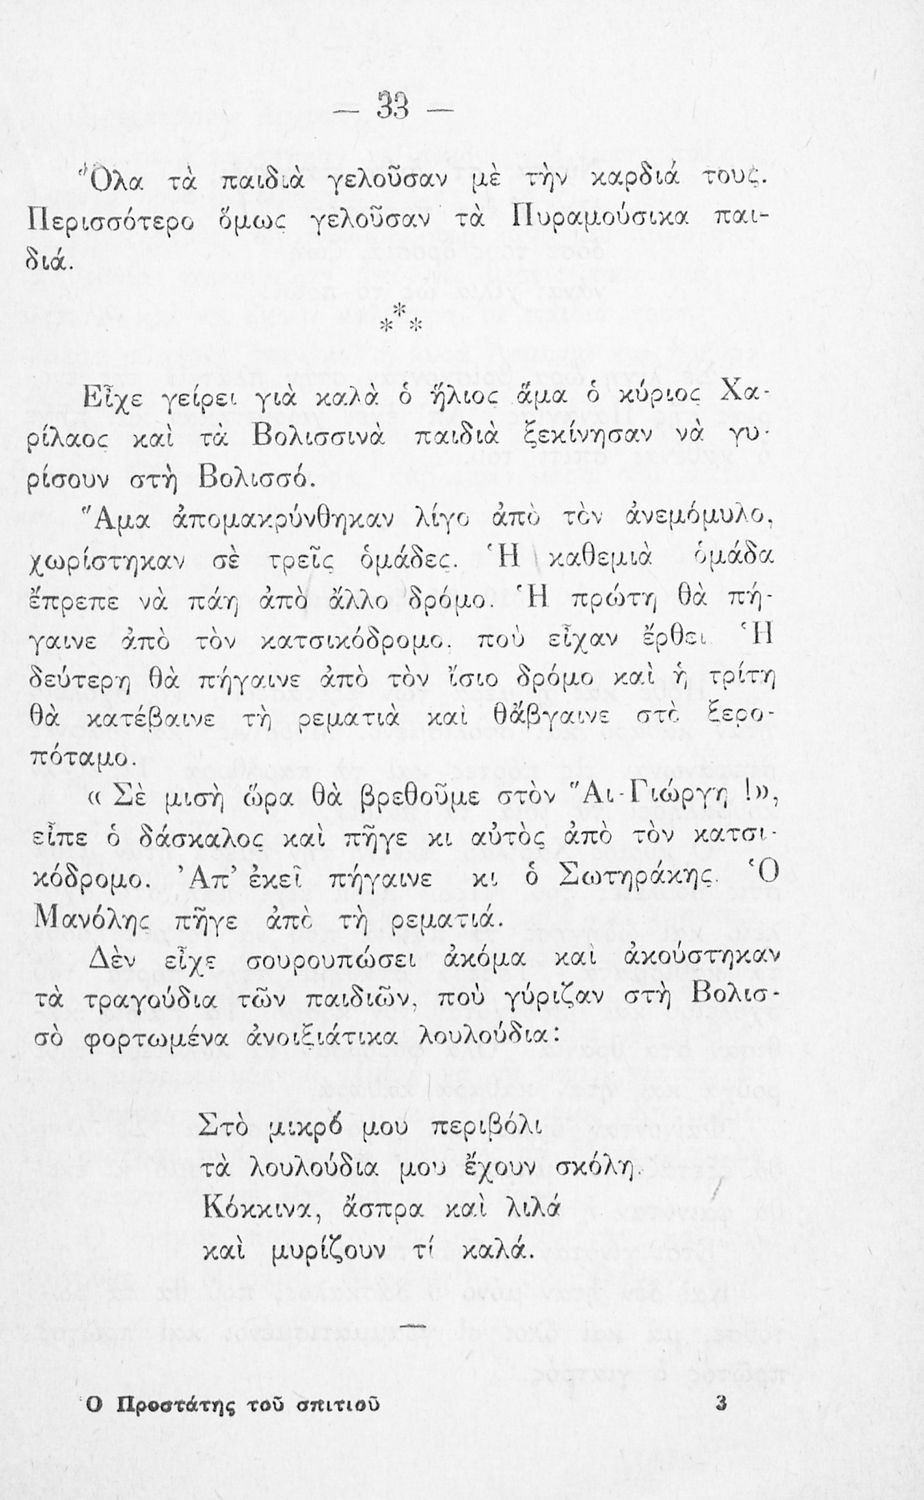 — 33 —
Ὅλα τὰ παιδιὰ γελοῦσαν μὲ τὴν καρδιά τους.
Περισσότερο ὅμως γελοῦσαν τὰ Πυραμούσικα παι-
διά.
***
Εἶχε γείρει γιὰ καλὰ ὁ ἥλιος ἅμα ὁ κύριος Χα-
ρίλαος καὶ τὰ Βολισσινὰ παιδιὰ ξεκίνησαν νὰ γυ-
ρίσουν στὴ Βολισσό.
Ἅμα ἀπομακρύνθηκαν λίγο ἀπὸ τὸν ἀνεμόμυλο,
χωρίστηκαν σὲ τρεῖς ὁμάδες. Ἡ καθεμιὰ ὁμάδα
ἔπρεπε νὰ πάη ἀπὸ ἄλλο δρόμο. Ἡ πρώτη θὰ πή-
γαινε ἀπὸ τὸν κατσικόδρομο, ποὺ εἶχαν ἔρθει Ἡ
δεύτερη θὰ πήγαινε ἀπὸ τὸν ἴσιο δρόμο καὶ ἡ τρίτη
θὰ κατέβαινε τὴ ρεματιὰ καὶ θἄβγαινε στὸ ξερο-
πόταμο.
« Σὲ μισὴ ὥρα θὰ βρεθοῦμε στὸν Ἅι-Γιώργη !»,
εἶπε ὁ δάσκαλος καὶ πῆγε κι αὐτὸς ἀπὸ τὸν κατσι-
κόδρομο. Ἀπ' ἐκεῖ πήγαινε κι ὁ Σωτηράκης. Ὁ
Μανόλης πῆγε ἀπὸ τὴ ρεματιά.
Δὲν εἶχε σουρουπώσει ἀκόμα καὶ ἀκούστηκαν
τὰ τραγούδια τῶν παιδιῶν, ποὺ γύριζαν στὴ Βολισ-
σὸ φορτωμένα ἀνοιξιάτικα λουλούδια:
Στὸ μικρό μου περιβόλι
τὰ λουλούδια μου ἔχουν σκόλη.
Κόκκινα, ἄσπρα καὶ λιλά
καὶ μυρίζουν τί καλά.
—
Ὁ Προστάτης τοῦ σπιτιοῦ 3